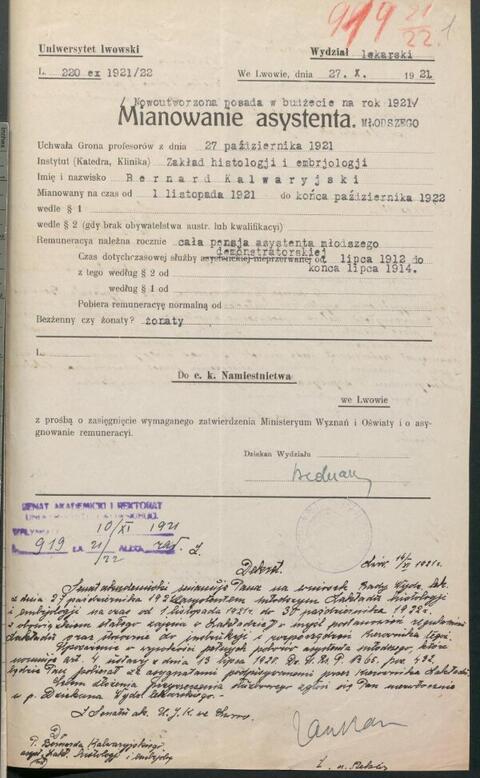 919 21/22 1
Uniwersytet lwowski
Wydział lekarski
L. 220 ex 1921/22
We Lwowie, dnia 27. X. 1921
/ Nowoutworzona posada w budżecie na rok 1921/
Mianowanie asystenta. MŁODSZEGO
Uchwała Grona profesorów z dnia 27 października 1921
Instytut (Katedra, Klinika) Zakład histologji i embrjologji
Imię i nazwisko Bernard Kalwaryjski
Mianowany na czas od 1 listopada 1921 do końca października 1922
wedle § 1
wedle § 2 (gdy brak obywatelstwa austr. lub kwalifikacyi)
Remuneracya należna rocznie cała pensja asystenta młodszego
demonstratorskiej
Czas dotychczasowej służby asystenckiej nieprzerwanej od lipca 1912 do
z tego według § 2 od końca lipca 1914.
według § 1 od
Pobiera remuneracyę normalną od
Bezżenny czy żonaty? żonaty
L.
Do c. k. Namiestnictwa
we Lwowie
z prośbą o zasięgnięcie wymaganego zatwierdzenia Ministeryum Wyznań i Oświaty i o asy-
gnowanie remuneracyi.
Dziekan Wydziału
SENAT AKADEMICKI I REKTORAT
10/XI 1921
919 21/22
Dekret.
Senat akademicki mianuje Pana na wniosek Rady Wydz. lek.
z dnia 27 października 1921 młodszym Zakładu histologji
i embrjologji na czas od 1 listopada 1921 do 31 października 1922 z
obowiązkiem stałego zajęcia w Zakładzie w myśl postanowień regulaminu
Zakładu oraz stosownie do instrukcji i rozporządzeń Kierownika tegoż.
w wysokości pełnych poborów asystenta młodszego, które
normuje art. 4 ustawy z dnia 13 lipca 1920. Dz. U. Rz. P. № 65. poz. 432,
będzie Pan pobierał za asygnatami podpisywanemi przez Kierownika Zakładu.
Celem złożenia służbowego zgłosi się Pan niezwłocznie
u p. Dziekana Wydz. lekarskiego.
Z Senatu ak. U. J. K. we Lwowie
Do
P. Bernarda Kalwaryjskiego